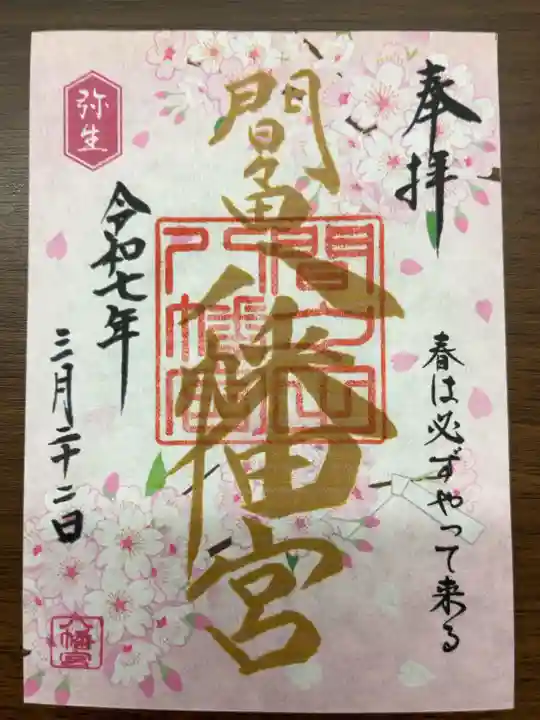 奉拝
春は必ずやって来る
間々田八幡宮
弥生
令和七年
三月二十二日
八幡宮